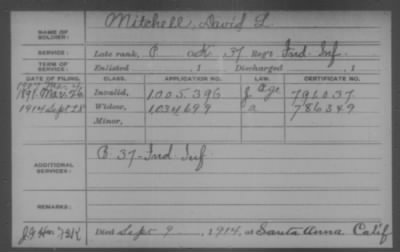 NAME OF SOLDIER: Mitchell, David L.
SERVICE: Late rank, P Co. K, 37 Reg't Ind. Inf.
TERM OF SERVICE: Enlisted , 1 Discharged , 1
DATE OF FILING. CLASS. APPLICATION NO. LAW. CERTIFICATE NO.
1891 Mar. 26 Invalid, 1.005.396 g Age 796037
1914 Sept 28 Widow, 1,034699 a 786349
Minor,
ADDITIONAL SERVICES: B 37-Ind Inf
REMARKS:
Died Sept 9, 1914, at Santa Anna Calif